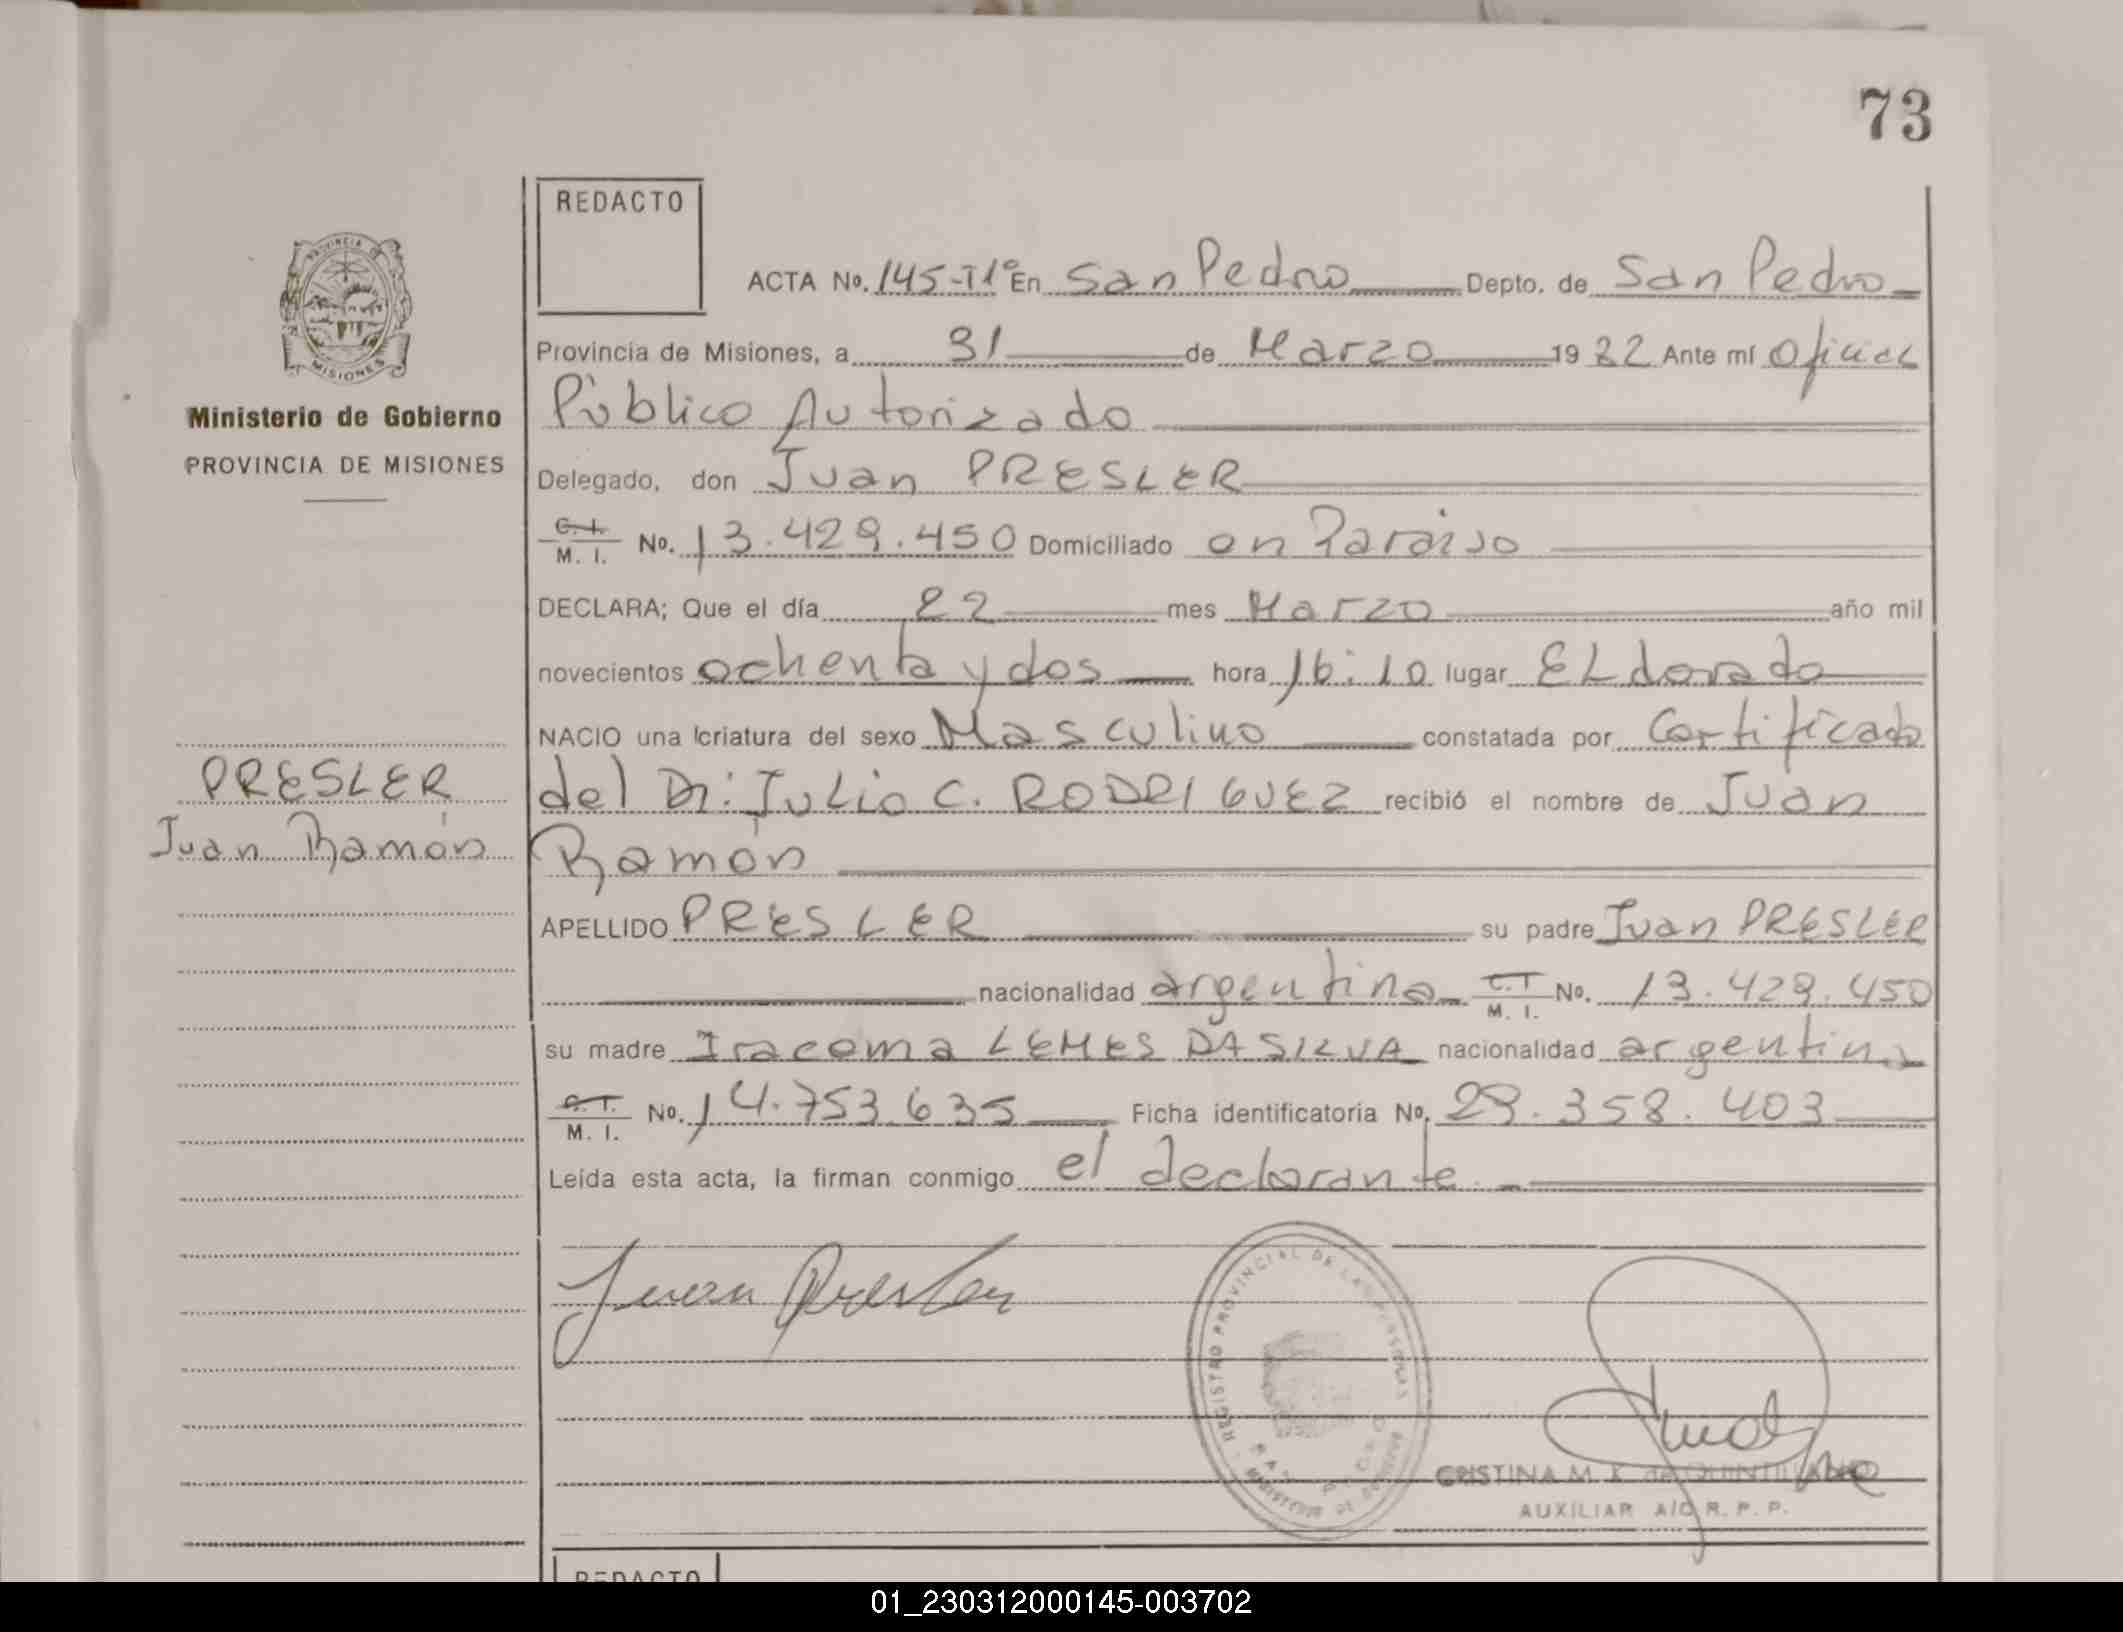 73
REDACTO
ACTA No. 145-T1° En San Pedro Depto. de San Pedro
PROVINCIA DE
MISIONES
Provincia de Misiones, a 31 de Marzo 1982 Ante mí Oficial
Ministerio de Gobierno
Público Autorizado
PROVINCIA DE MISIONES
Delegado, don Juan PRESLER
C. I.
M. I. No. 13.429.450 Domiciliado en Paraiso
DECLARA; Que el día 22 mes Marzo año mil
novecientos ochenta y dos hora 16:10 lugar ELdorado
NACIO una criatura del sexo Masculino constatada por Certificado
PRESLER
del Dr: Julio C. RODRIGUEZ recibió el nombre de Juan
Juan Ramón
Ramón
APELLIDO PRESLER su padre Juan PRESLER
nacionalidad argentina C.I. M. I. No. 13.429.450
su madre Iracema LEMES DA SILVA nacionalidad argentina
C. I.
M. I. No. 14.753.635 Ficha identificatoria No. 29.358.403
Leída esta acta, la firman conmigo el declarante.
Juan Presler
REGISTRO PROVINCIAL DE LAS PERSONAS
MISIONES
CRISTINA M. K. de
AUXILIAR A/C R. P. P.
REDACTO
01_230312000145-003702